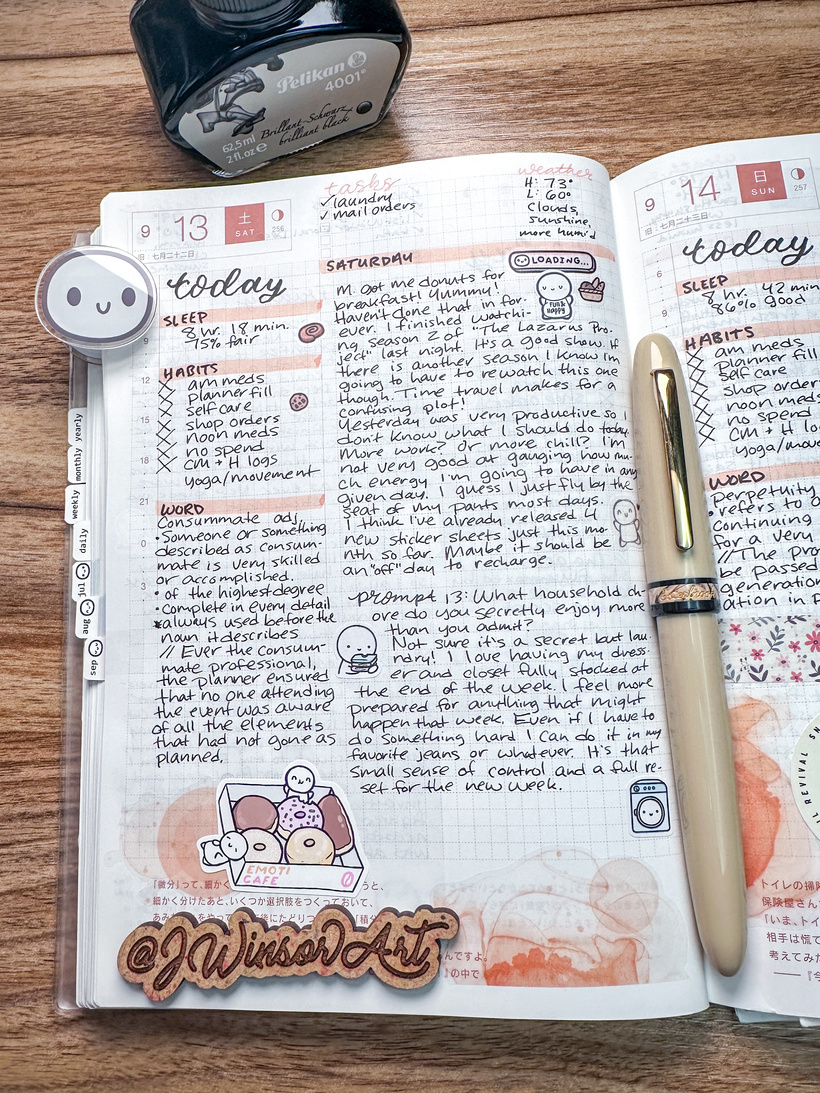 Pelikan
4001®
Brillant-Schwarz
brilliant black
62,5 ml
2 fl.oz ℮
9 13 土
SAT
256
旧：七月二十二日
tasks
✓laundry
✓mail orders
weather
H: 73°
L: 60°
Clouds,
sunshine,
more humid
today
SLEEP
8 hr. 18 min.
75% fair
HABITS
am meds
planner fill
self care
shop orders
noon meds
no spend
CM + H logs
yoga/movement
WORD
Consummate adj.
•Someone or something
described as consum-
mate is very skilled
or accomplished.
• of the highest degree
•Complete in every detail
*always used before the
noun it describes
// Ever the consum-
mate professional,
the planner ensured
that no one attending
the event was aware
of all the elements
that had not gone as
planned.
9
12
15
18
21
0
3
SATURDAY
LOADING...
FUN &
HAPPY
M. got me donuts for
breakfast! Yummy!
Haven't done that in for-
ever. I finished watchi-
ng season 2 of "The Lazarus Pro-
ject" last night. It's a good show. If
there is another season I know I'm
going to have to rewatch this one
though. Time travel makes for a
confusing plot!
Yesterday was very productive so I
don't know what I should do today.
More work? Or more chill? I'm
not very good at gauging how mu-
ch energy I'm going to have in any
given day. I guess I just fly by the
seat of my pants most days.
I think I've already released 4
new sticker sheets just this mo-
nth so far. Maybe it should be
an "off" day to recharge.
prompt 13: What household ch-
ore do you secretly enjoy more
than you admit?
Not sure it's a secret but lau-
ndry! I love having my dress-
er and closet fully stocked at
the end of the week. I feel more
prepared for anything that might
happen that week. Even if I have to
do something hard I can do it in my
favorite jeans or whatever. It's that
small sense of control and a full re-
set for the new week.
EMOTI
CAFE
『微分』って、細かく
うと、
細かく分けたあと、いくつか選択肢をつくっておいて、
んですよ。
の中で
@JWinsorArt
yearly
monthly
weekly
daily
jul
aug
sep
9 14 日
SUN
257
旧：七月二十三日
today
6
9
SLEEP
8 hr. 42 min
86% good
HABITS
am meds
planner fill
self care
shop orders
noon meds
no spend
CM + H logs
yoga/move
WORD
perpetuity
•refers to
continuing
for a very
//The pro
be passed
generation
ation in p
REVIVAL
トイレの掃
保険屋さん
『いま、トイ
相手は慌て
考えてみた
——『今